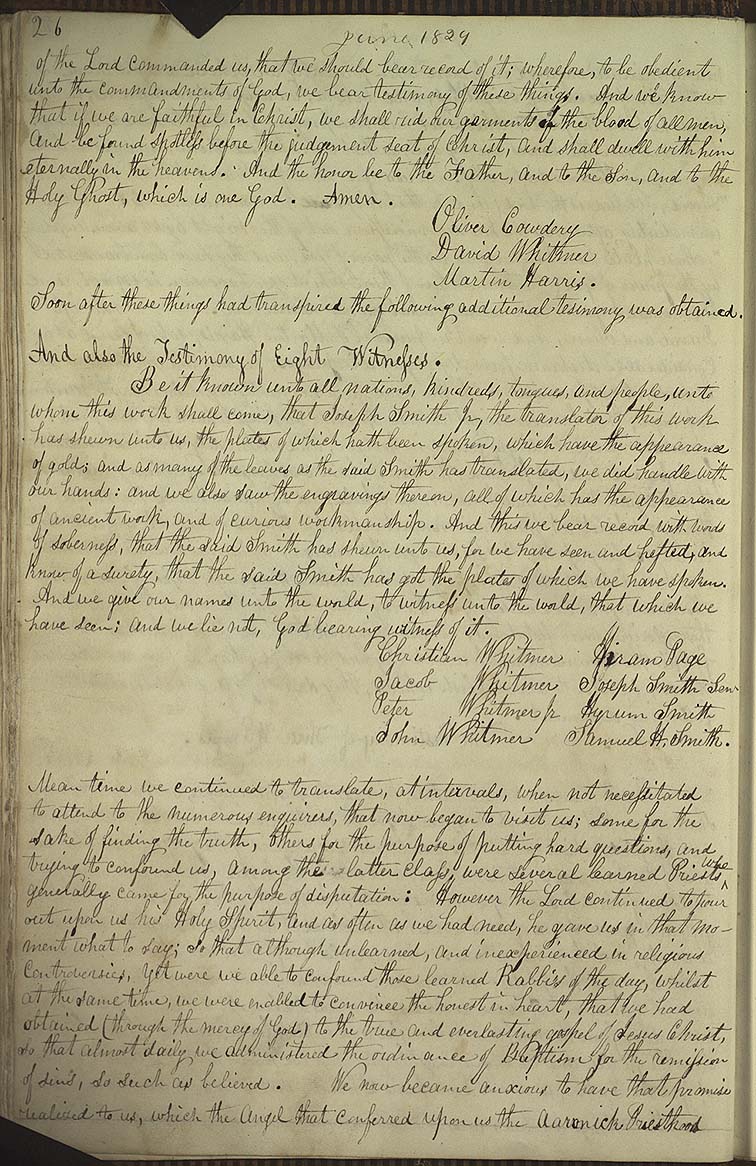 26
June 1829
of the Lord commanded us, that we should bear record of it; wherefore, to be obedient
unto the commandments of God, we bear testimony of these things. And we know
that if we are faithful in Christ, we shall rid our garments of the blood of all men,
and be found spotless before the judgement seat of Christ, and shall dwell with him
eternally in the heavens. And the honor be to the Father, and to the Son, and to the
Holy Ghost, which is one God. Amen.
Oliver Cowdery
David Whitmer
Martin Harris.
Soon after these things had transpired the following additional tesimony was obtained.
And also the Testimony of Eight Witnesses.
Be it known unto all nations, kindreds, tongues, and people, unto
whom this work shall come, that Joseph Smith Jr, the translator of this work
has shewn unto us, the plates of which hath been spoken, which have the appearance
of gold; and as many of the leaves as the said Smith has translated, we did handle with
our hands: and we also saw the engravings thereon, all of which has the appearance
of ancient work, and of curious workmanship. And this we bear record with words
of soberness, that the said Smith has shewn unto us, for we have seen and hefted, and
know of a surety, that the said Smith has got the plates of which we have spoken.
And we give our names unto the world, to witness unto the world, that which we
have seen; and we lie not, God bearing witness of it.
Christian Whitmer Hiram Page
Jacob Whitmer Joseph Smith Sen
Peter Whitmer jr Hyrum Smith
John Whitmer Samuel H. Smith.
Mean time we continued to translate, at intervals, when not necessitated
to attend to the numerous enquirers, that now began to visit us; some for the
sake of finding the truth, others for the purpose of putting hard questions, and
trying to confound us, among the latter class, were several learned Priests who
generally came for the purpose of disputation: However the Lord continued to pour
out upon us his Holy Spirit, and as often as we had need, he gave us in that mo-
ment what to say; so that although unlearned, and inexperienced in religious
controversies, yet were we able to confound those learned Rabbi's of the day, whilst
at the same time, we were enabled to convince the honest in heart, that we had
obtained (through the mercy of God) to the true and everlasting gospel of Jesus Christ,
so that almost daily we administered the ordinance of Baptism for the remission
of sins, so such as believed. We now became anxious to have that promise
realized to us, which the Angel that conferred upon us the Aaronick Priesthood